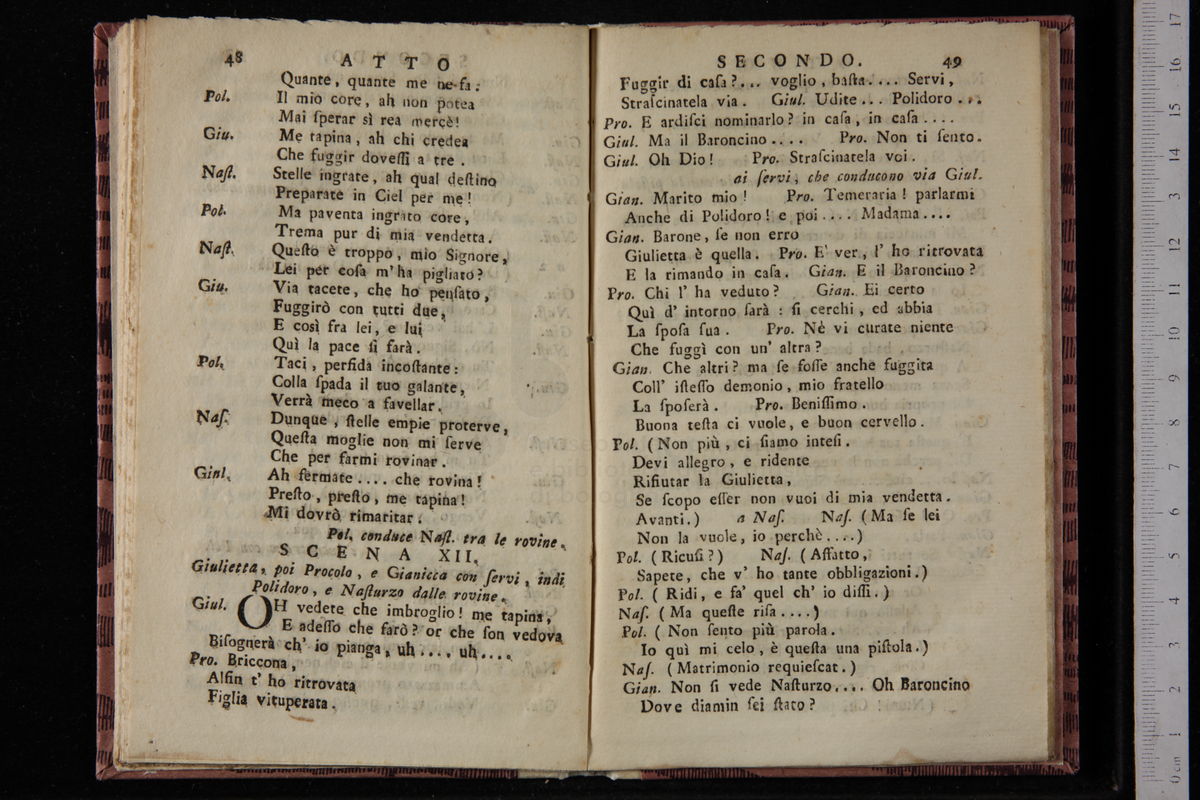 48
ATTO
Quante, quante me ne fa.
Pol. Il mio core, ah non potea
Mai ſperar sì rea mercè!
Giu. Me tapina, ah chi credea
Che fuggir doveſſi a tre.
Naſt. Stelle ingrate, ah qual deſtino
Preparate in Ciel per me!
Pol. Ma paventa ingrato core,
Trema pur di mia vendetta.
Naſt. Queſto è troppo, mio Signore,
Lei per coſa m' ha pigliato?
Giu. Via tacete, che ho penſato,
Fuggirò con tutti due,
E così fra lei, e lui
Quì la pace ſi farà.
Pol. Taci, perfida incoſtante:
Colla ſpada il tuo galante,
Verrà meco a favellar.
Naſ. Dunque, ſtelle empie proterve,
Queſta moglie non mi ſerve
Che per farmi rovinar.
Giul. Ah fermate.... che rovina!
Preſto, preſto, me tapina!
Mi dovrò rimaritar.
Pol. conduce Naſt. tra le rovine.
SCENA XII.
Giulietta, poi Procolo, e Gianicca con ſervi, indi
Polidoro, e Naſturzo dalle rovine.
Giul. OH vedete che imbroglio! me tapina,
E adeſſo che farò? or che ſon vedova
Biſognerà ch' io pianga, uh...., uh....
Pro. Briccona,
Alfin t' ho ritrovata
Figlia vituperata.
SECONDO.
49
Fuggir di caſa?... voglio, baſta.... Servi,
Straſcinatela via. Giul. Udite... Polidoro...
Pro. E ardiſci nominarlo? in caſa, in caſa....
Giul. Ma il Baroncino.... Pro. Non ti ſento.
Giul. Oh Dio! Pro. Straſcinatela voi.
ai ſervi, che conducono via Giul.
Gian. Marito mio! Pro. Temeraria! parlarmi
Anche di Polidoro! e poi.... Madama....
Gian. Barone, ſe non erro
Giulietta è quella. Pro. E' ver, l' ho ritrovata
E la rimando in caſa. Gian. E il Baroncino?
Pro. Chi l' ha veduto? Gian. Ei certo
Quì d' intorno ſarà: ſi cerchi, ed abbia
La ſpoſa ſua. Pro. Nè vi curate niente
Che fuggì con un' altra?
Gian. Che altri? ma ſe foſſe anche fuggita
Coll' iſteſſo demonio, mio fratello
La ſpoſerà. Pro. Beniſſimo.
Buona teſta ci vuole, e buon cervello.
Pol. (Non più, ci ſiamo inteſi.
Devi allegro, e ridente
Rifiutar la Giulietta,
Se ſcopo eſſer non vuoi di mia vendetta.
Avanti.) a Naſ. Naſ. (Ma ſe lei
Non la vuole, io perchè....)
Pol. (Ricuſi?) Naſ. (Affatto,
Sapete, che v' ho tante obbligazioni.)
Pol. (Ridi, e fa' quel ch' io diſſi.)
Naſ. (Ma queſte riſa....)
Pol. (Non ſento più parola.
Io quì mi celo, è queſta una piſtola.)
Naſ. (Matrimonio requieſcat.)
Gian. Non ſi vede Naſturzo.... Oh Baroncino
Dove diamin ſei ſtato?